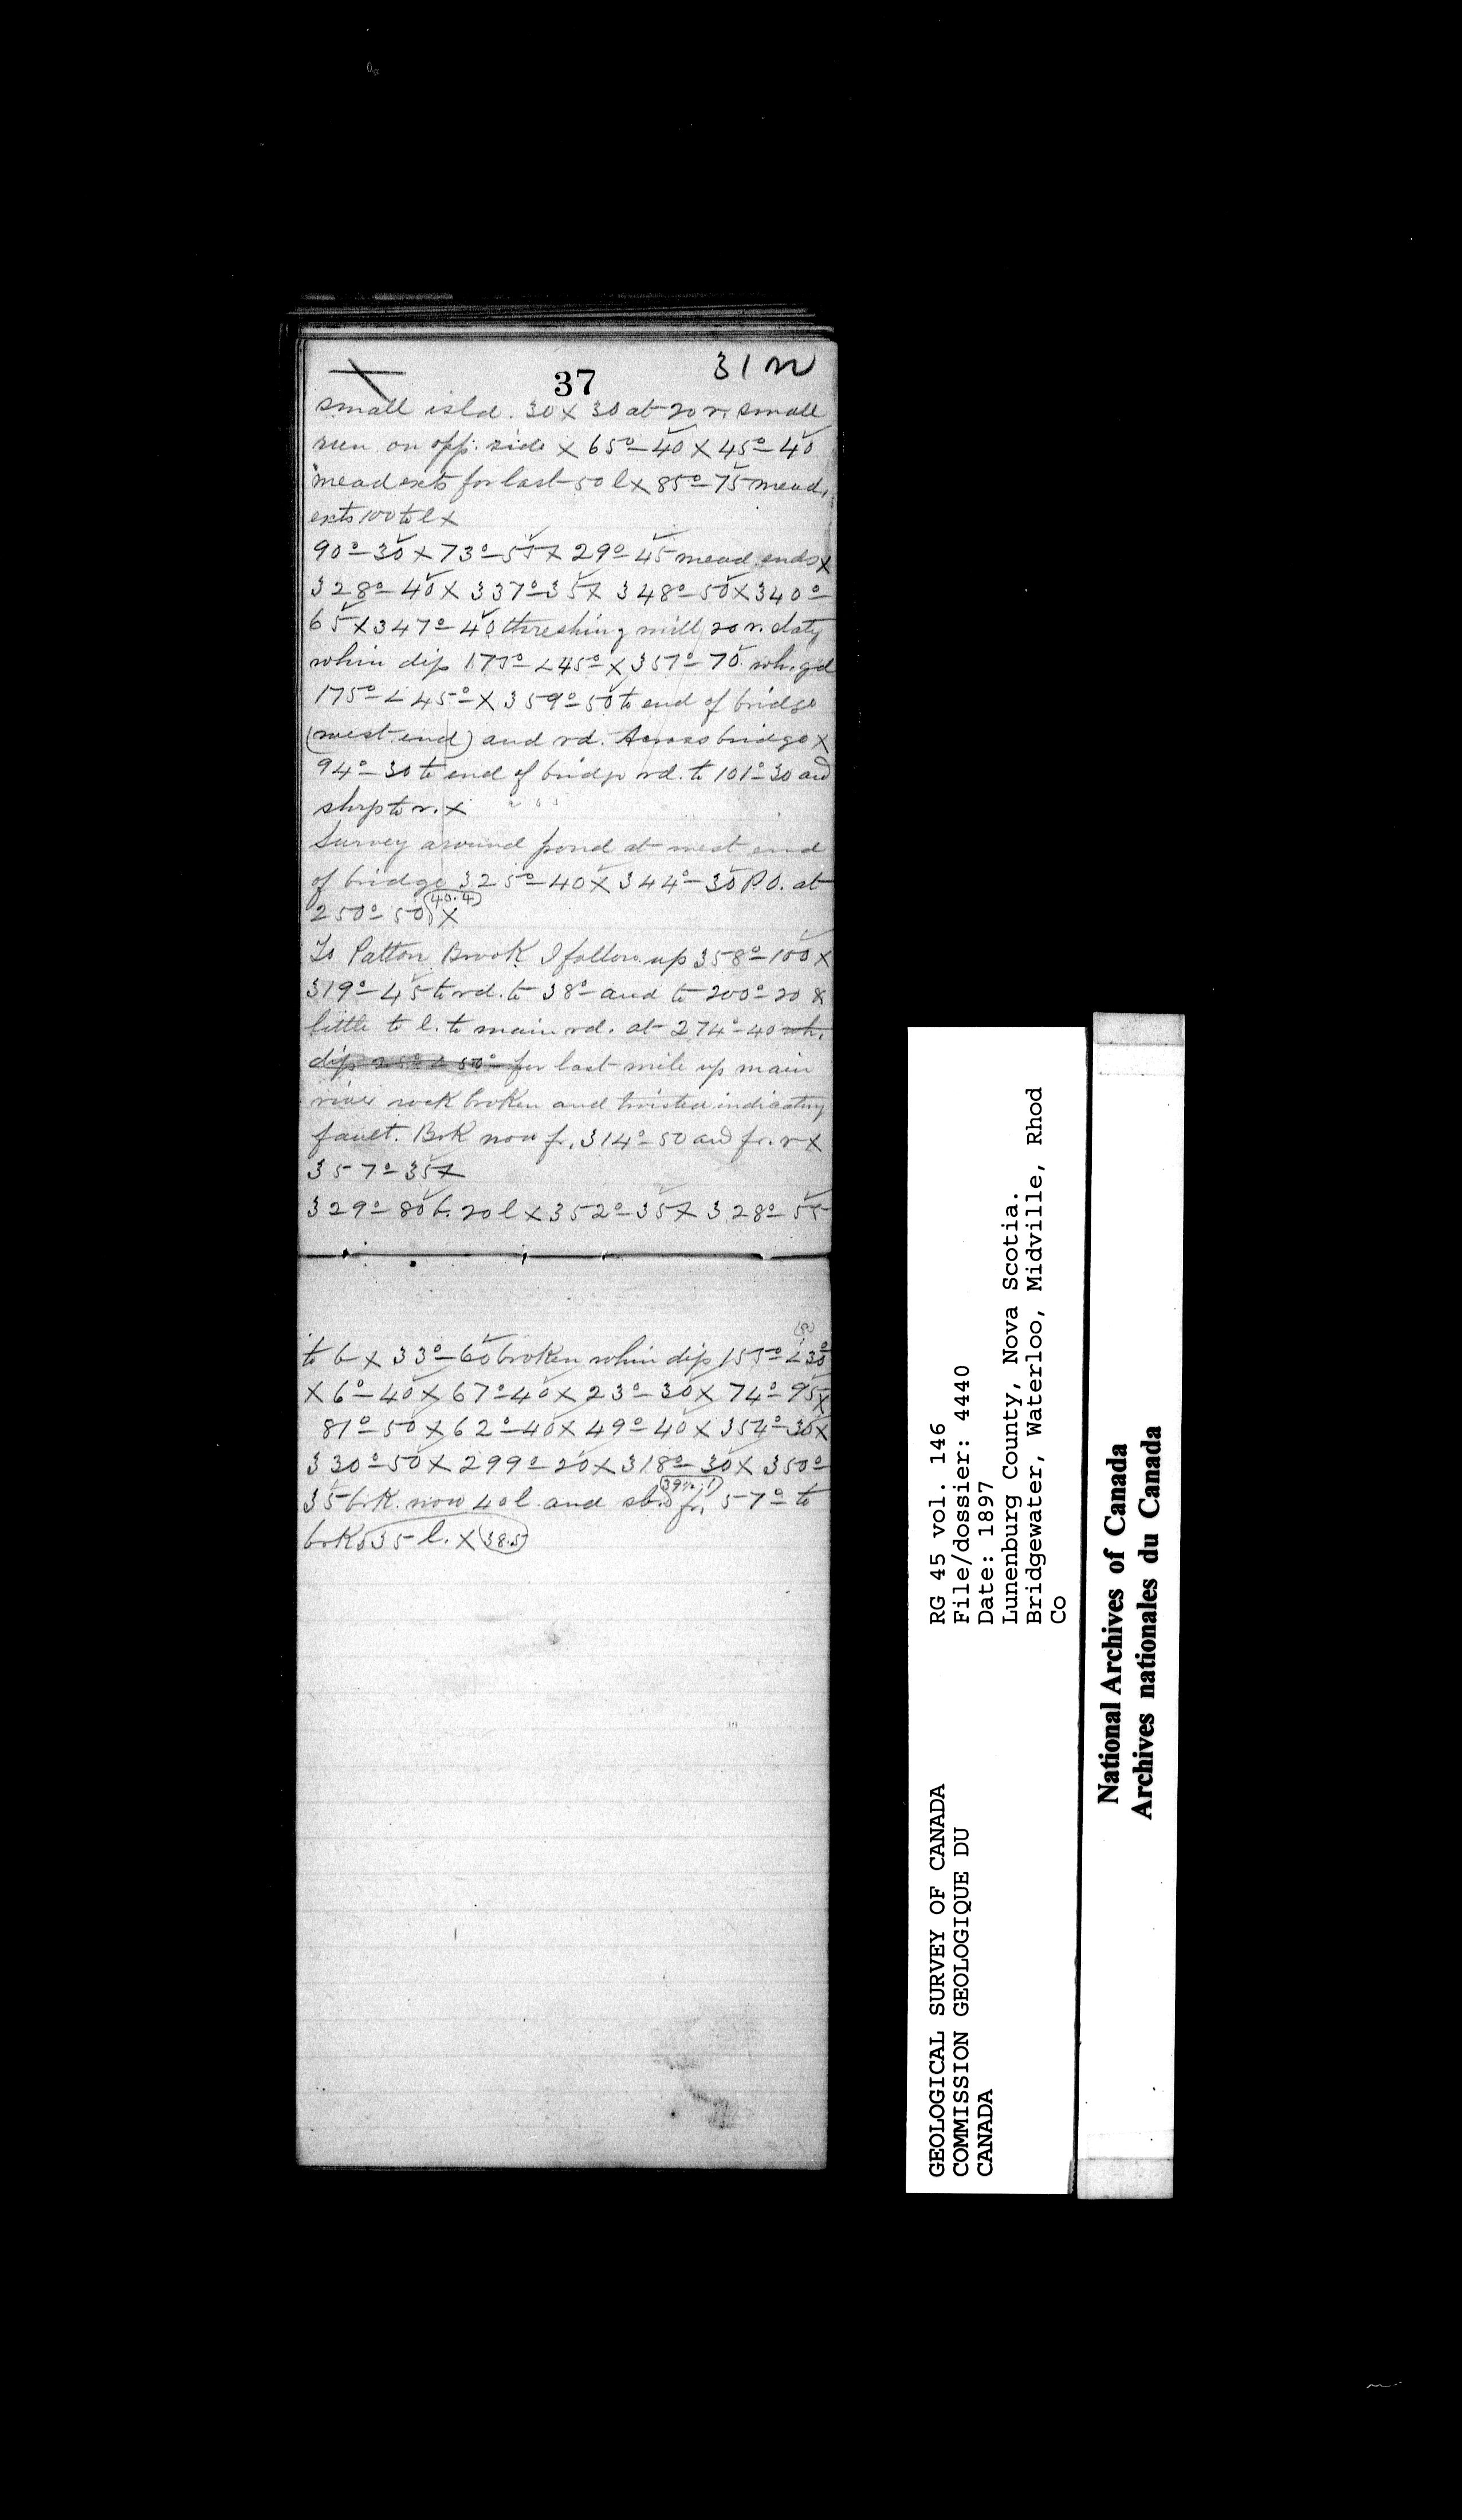 37 31 N
small isld. 30 X 30 at 20 r. small
run on opp. side X 65° - 40 X 45° - 40
mead exts for last 50 l X 85° - 75 mead,
exts 100 to l X
90° - 30 X 73° - 55 X 29° - 45 mead ends X
328° - 40 X 337° - 35 X 348° - 50 X 340° -
65 X 347° - 40 threshing mill 20 r. slaty
whin dip 175° ∠ 45° X 357° - 70 wh. gd
175° ∠ 45° X 359° - 50 to end of bridge
(west end) and rd. Across bridge X
94° - 30 to end of bridge rd. to 101° - 30 and
shop to r. X
Survey around pond at west end
of bridge 325° - 40 X 344° - 30 P.O. at
250° - 50 (40.4) X
To Patton Brook I follow up 358° - 100 X
319° - 45 to rd. to 38° and to 200° - 20 X
little to l. to main rd. at 274° - 40 wh.
dip 50° for last mile up main
river rock broken and twisted indicating
fault. Brk now fr. 314° - 50 and fr. r X
357° - 35 X
329° - 80 b. 20 l X 352° - 35 X 328° - 55
to b X 33° - 60 broken whin dip 155° ∠ 30°
X 6° - 40 X 67° - 40 X 23° - 30 X 74° - 95 X
81° - 50 X 62° - 40 X 49° - 40 X 354° - 30 X
330° - 50 X 299° - 20 X 318° - 30 X 350° -
35 brk. now 40 l. and fr. 57° to
brk 35 l. X (38.5)
RG 45 vol. 146
File/dossier: 4440
Date: 1897
Lunenburg County, Nova Scotia.
Bridgewater, Waterloo, Midville, Rhod
Co
GEOLOGICAL SURVEY OF CANADA
COMMISSION GEOLOGIQUE DU
CANADA
National Archives of Canada
Archives nationales du Canada